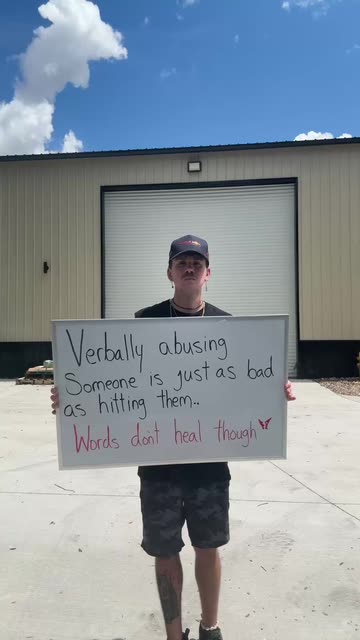 Verbally abusing
Someone is just as bad
as hitting them..
Words don't heal though